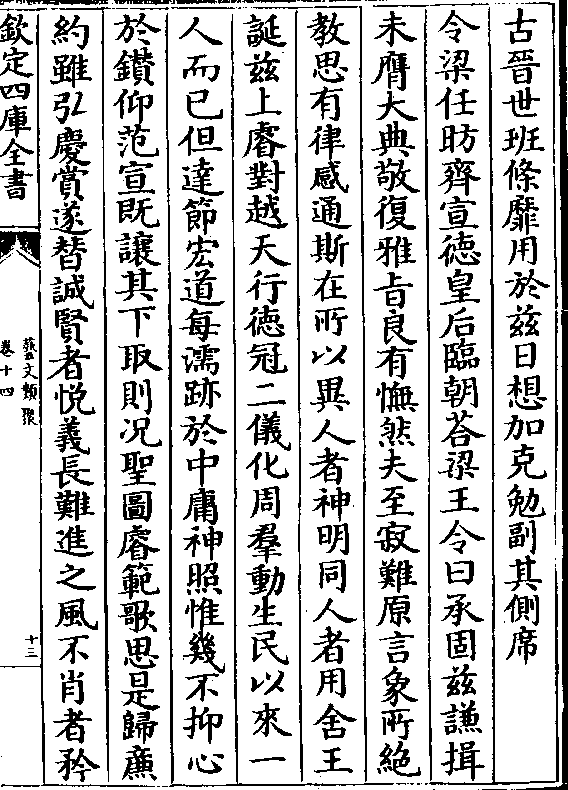 古晉世班條靡用於兹日想加克勉副其側席
令梁任昉齊宣徳皇后臨朝荅梁王令曰承固兹謙揖
未膺大典敬復雅㫖良有憮然夫至寂難原言象所絶
教思有律感通斯在所以異人者神明同人者用舍王
誕兹上睿對越天行徳冠二儀化周羣動生民以來一
人而已但達節宏道每濡跡於中庸神照惟幾不抑心
於鑚仰范宣既讓其下取則况聖圖睿範歌思是歸㢘
約雖弘慶賞遂替誠賢者悦義長難進之風不肖者矜
欽定四庫全書
藝文類聚
卷十四
十三